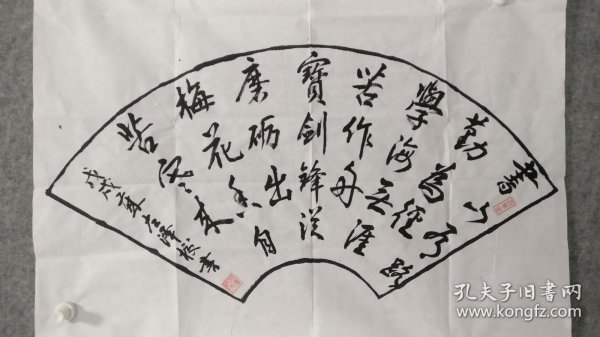 書山有路
勤為徑
學海無涯
苦作舟
寶劍鋒從
磨砺出
梅花香自
苦寒來
戊戌年 書
孔夫子旧书网
www.kongfz.com